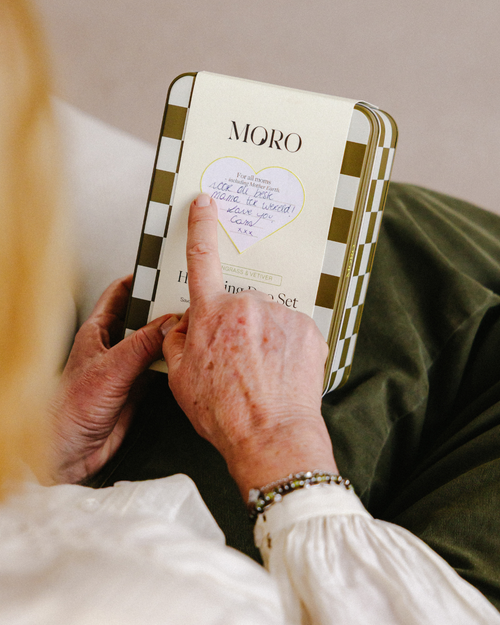 MORO
For all moms
including Mother Earth.
voor de beste
mama ter wereld!
Love you,
xxx
& VETIVER
Set